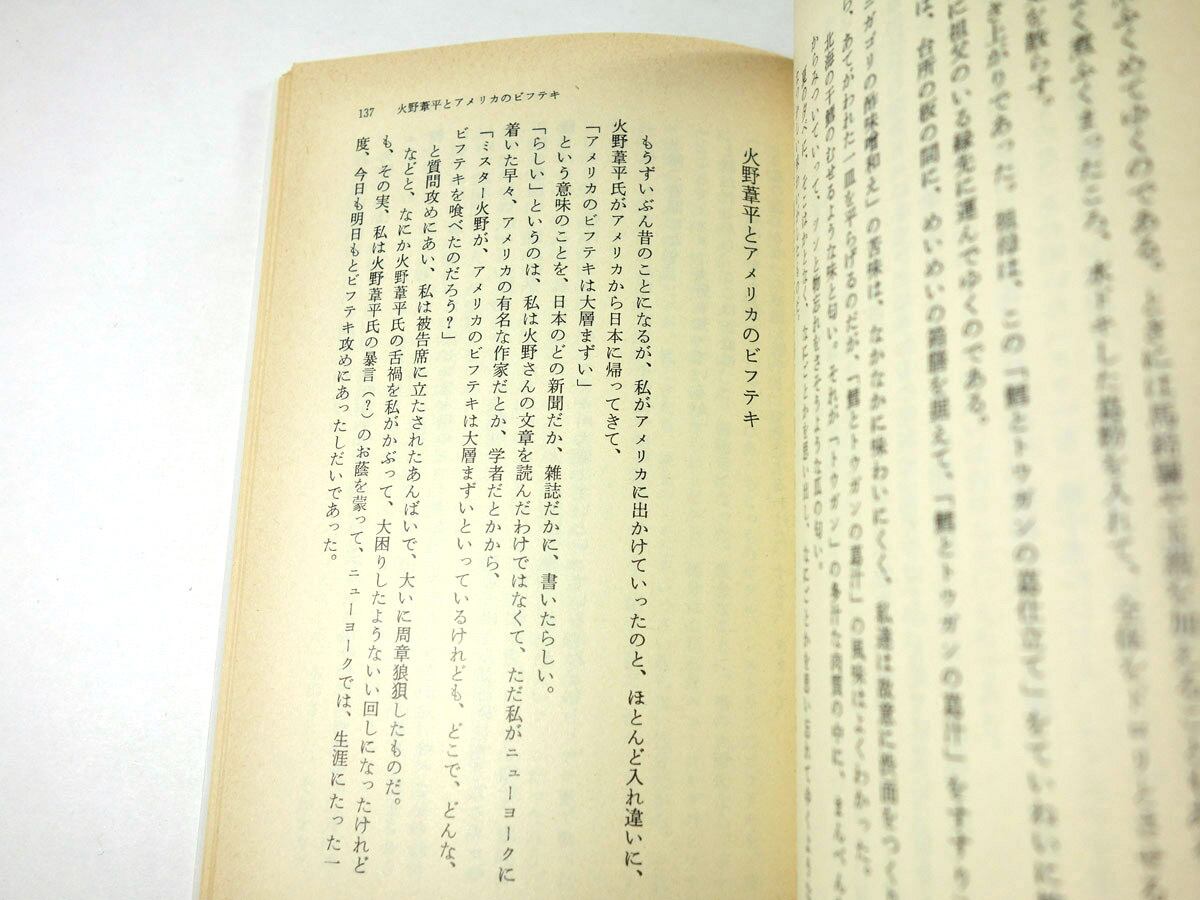 ふくめてゆくのである。ときには馬鈴薯や玉葱を加える
よく煮ふくまったころ、水
を散らす。
き上がりであった。祖母は、この「鱈とトウガンの葛仕立て」をていねいに
に祖父のいる縁先に運んでゆくのである。
は、台所の板の間に、めいめいの箱膳を据えて、「鱈とトウガンの葛汁」をすすり
ニガゴリの酢味噌和え」の苦味は、なかなかに味わいにくく、私達は故意に渋面をつく
ら、あてがわれた一皿を平らげるのだが、「鱈とトウガンの葛汁」の風味はよくわかった。
北海の干鱈のむせるような味と匂い。それが「トウガン」の多汁な肉質の中に、まんべん
からみついていって、ツンと物忘れをさそうような瓜の匂い。
137 火野葦平とアメリカのビフテキ
火野葦平とアメリカのビフテキ
もうずいぶん昔のことになるが、私がアメリカに出かけていったのと、ほとんど入れ違いに、
火野葦平氏がアメリカから日本に帰ってきて、
「アメリカのビフテキは大層まずい」
という意味のことを、日本のどの新聞だか、雑誌だかに、書いたらしい。
「らしい」というのは、私は火野さんの文章を読んだわけではなくて、ただ私がニューヨークに
着いた早々、アメリカの有名な作家だとか、学者だとかから、
「ミスター火野が、アメリカのビフテキは大層まずいといっているけれども、どこで、どんな、
ビフテキを喰べたのだろう?」
と質問攻めにあい、私は被告席に立たされたあんばいで、大いに周章狼狽したものだ。
などと、なにか火野葦平氏の舌禍を私がかぶって、大困りしたようないい回しになったけれど
も、その実、私は火野葦平氏の暴言(?)のお蔭を蒙って、ニューヨークでは、生涯にたった一
度、今日も明日もとビフテキ攻めにあったしだいであった。